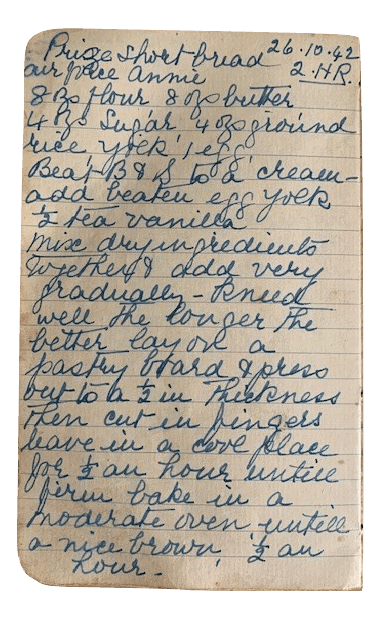 Prize Shortbread 26.10.42
air facee Annie 2.HR.
8 ozs flour 8 ozs butter
4 ozs Sugar 4 ozs ground
rice, yolk 1 egg
Beat B & S to a cream -
add beaten egg yolk
½ tea vanilla
Mix dry ingredients
together & add very
gradually - Kneed
well the longer the
better lay on a
pastry board & press
out to a ½ in thickness
then cut in fingers
leave in a cool place
for ½ an hour untill
firm bake in a
moderate oven untill
a nice brown, ½ an
hour -